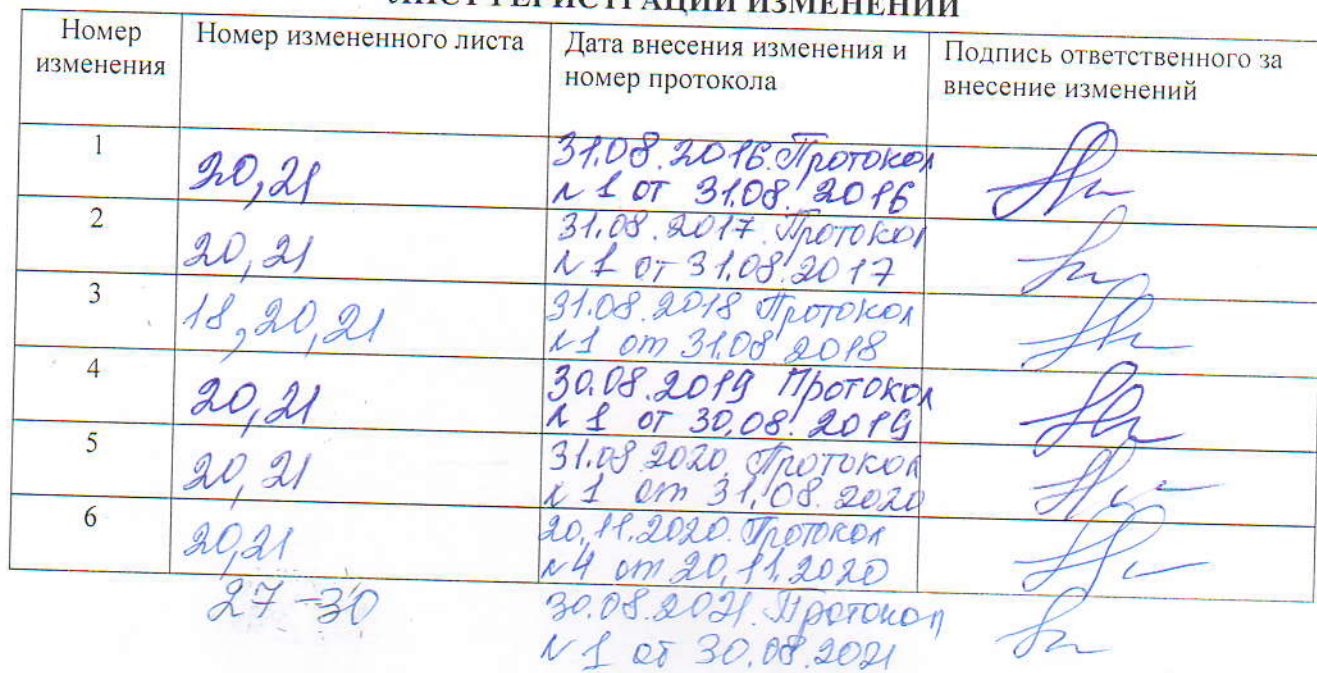 ЛИСТ РЕГИСТРАЦИИ ИЗМЕНЕНИЙ
Номер
изменения
Номер измененного листа
Дата внесения изменения и
номер протокола
Подпись ответственного за
внесение изменений
1
20,21
31.08.2016. Протокол
№1 от 31.08.2016
2
20,21
31.08.2017. Протокол
№1 от 31.08.2017
3
18,20,21
31.08.2018 Протокол
№1 от 31.08.2018
4
20,21
30.08.2019 Протокол
№1 от 30.08.2019
5
20,21
31.08.2020. Протокол
№1 от 31.08.2020
6
20,21
20.11.2020. Протокол
№4 от 20.11.2020
27-30
30.08.2021. Протокол
№1 от 30.08.2021